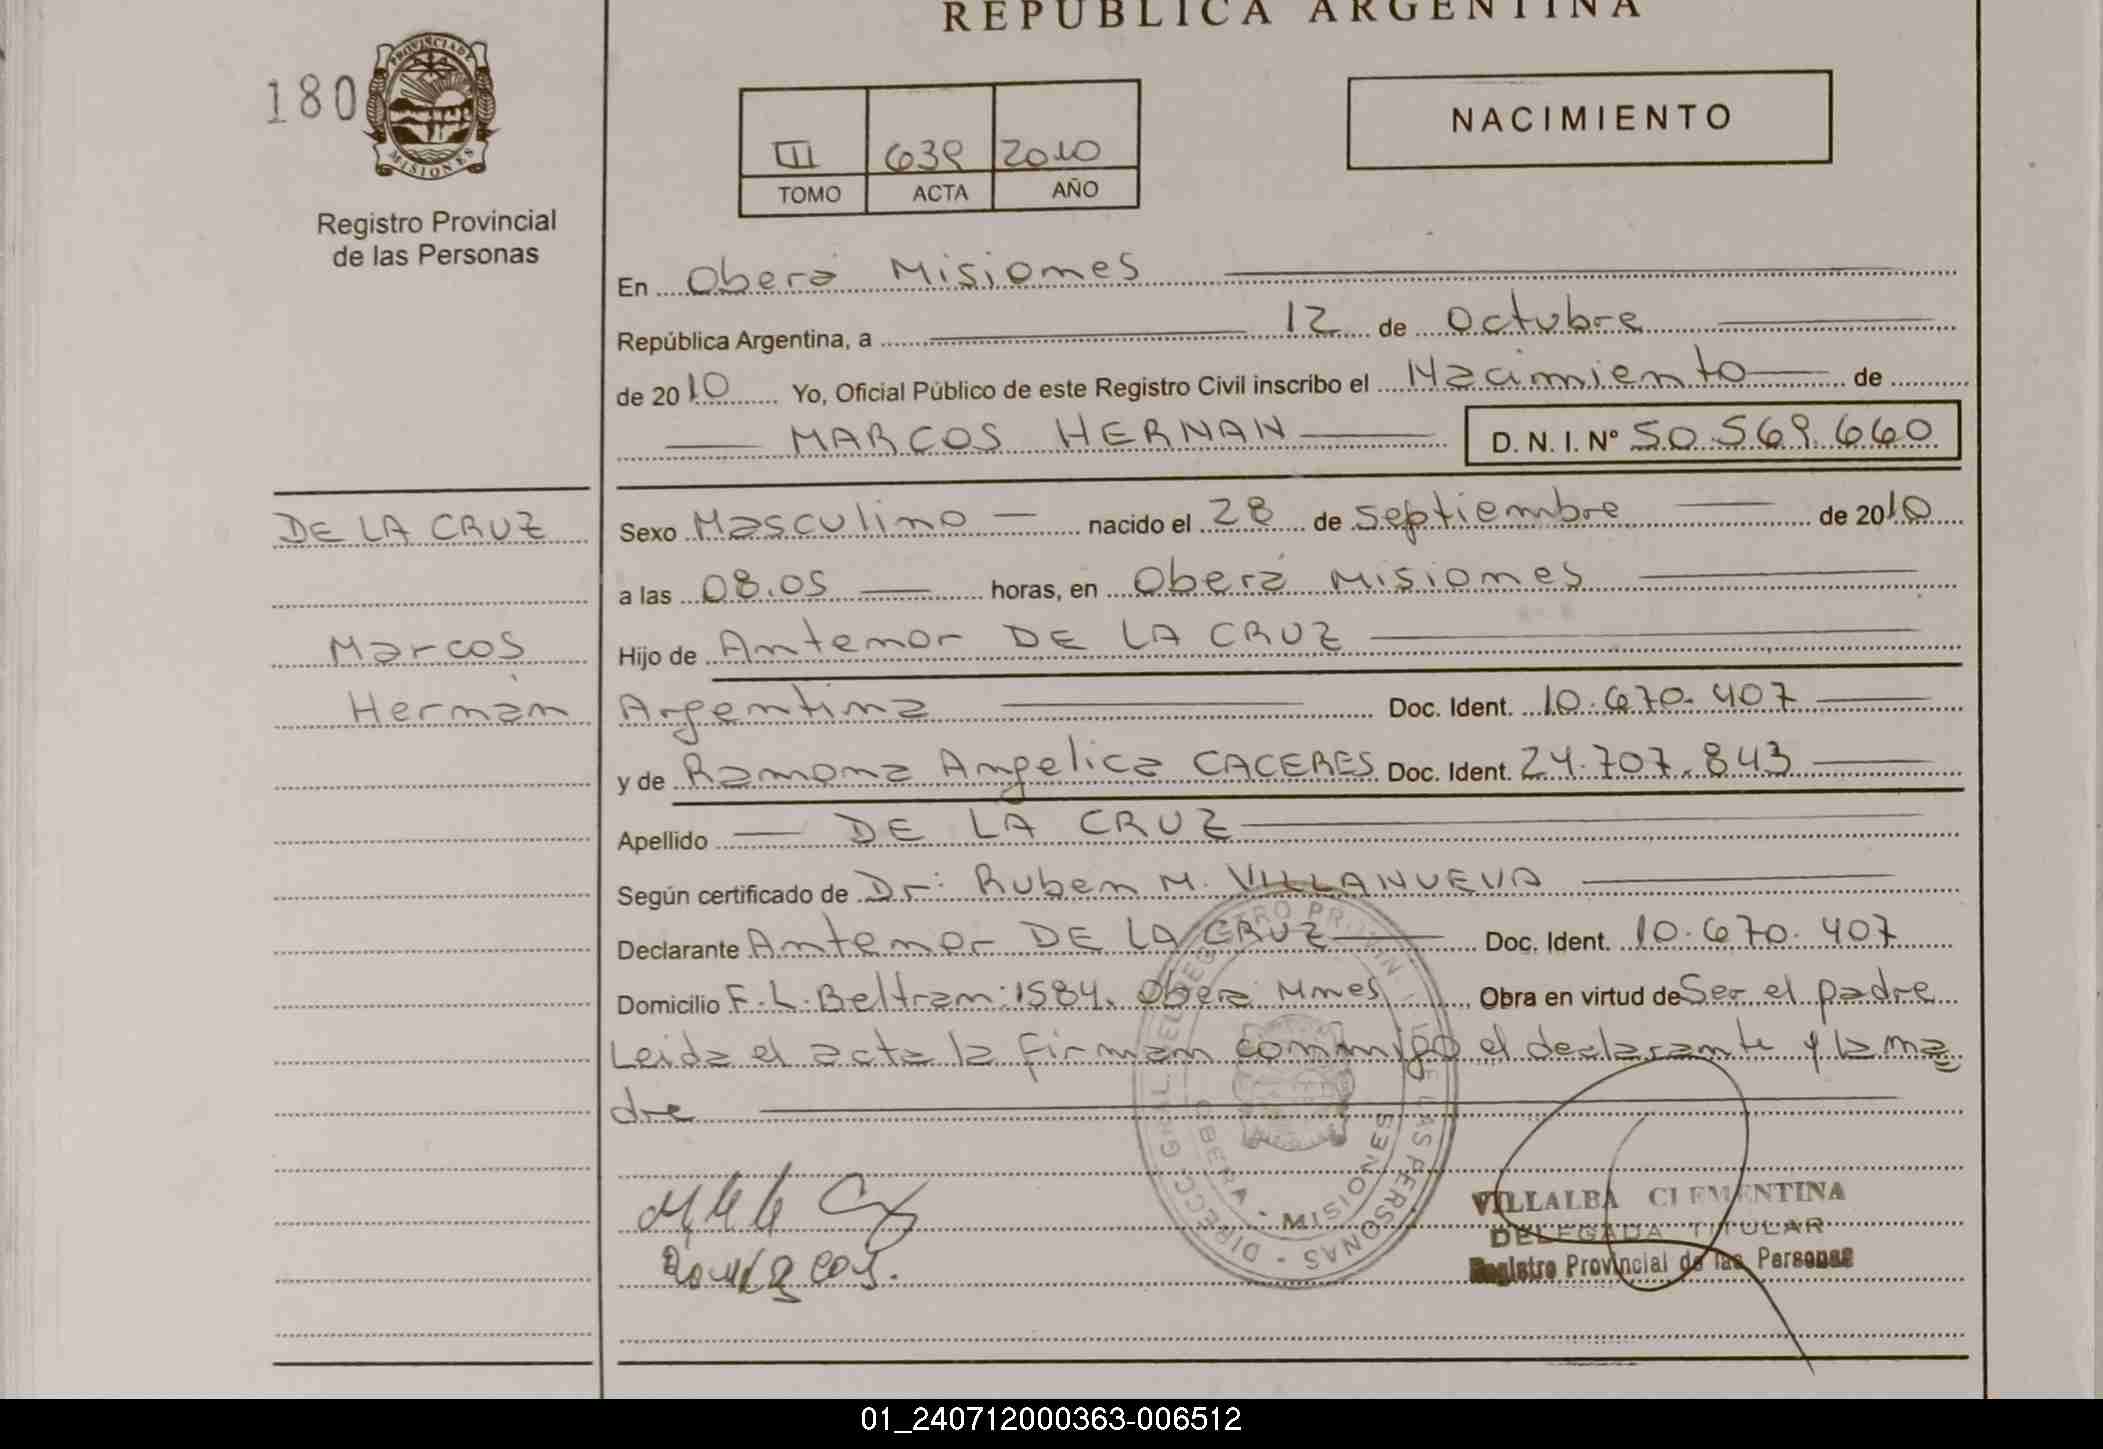 REPUBLICA ARGENTINA
180
PROVINCIA DE MISIONES
Registro Provincial
de las Personas
III 639 2010
TOMO ACTA AÑO
NACIMIENTO
En Oberá Misiones
República Argentina, a 12 de Octubre
de 2010 Yo, Oficial Público de este Registro Civil inscribo el Nacimiento de
MARCOS HERNAN D. N. I. Nº 50.569.660
DE LA CRUZ
Marcos
Hernán
Sexo Masculino nacido el 28 de septiembre de 2010
a las 08.05 horas, en Oberá Misiones
Hijo de Antenor DE LA CRUZ
Argentina Doc. Ident. 10.670.407
y de Ramona Angelica CACERES Doc. Ident. 24.707.843
Apellido DE LA CRUZ
Según certificado de Dr: Ruben M. VILLANUEVA
Declarante Antenor DE LA CRUZ Doc. Ident. 10.670.407
Domicilio F.L.Beltran:1584. Obera Mnes Obra en virtud de Ser el padre
Leida el acta la firman conmigo el declarante y la ma
dre
OBERA - MISIONES
VILLALBA CLEMENTINA
DELEGADA TITULAR
Registro Provincial de las Personas
01_240712000363-006512